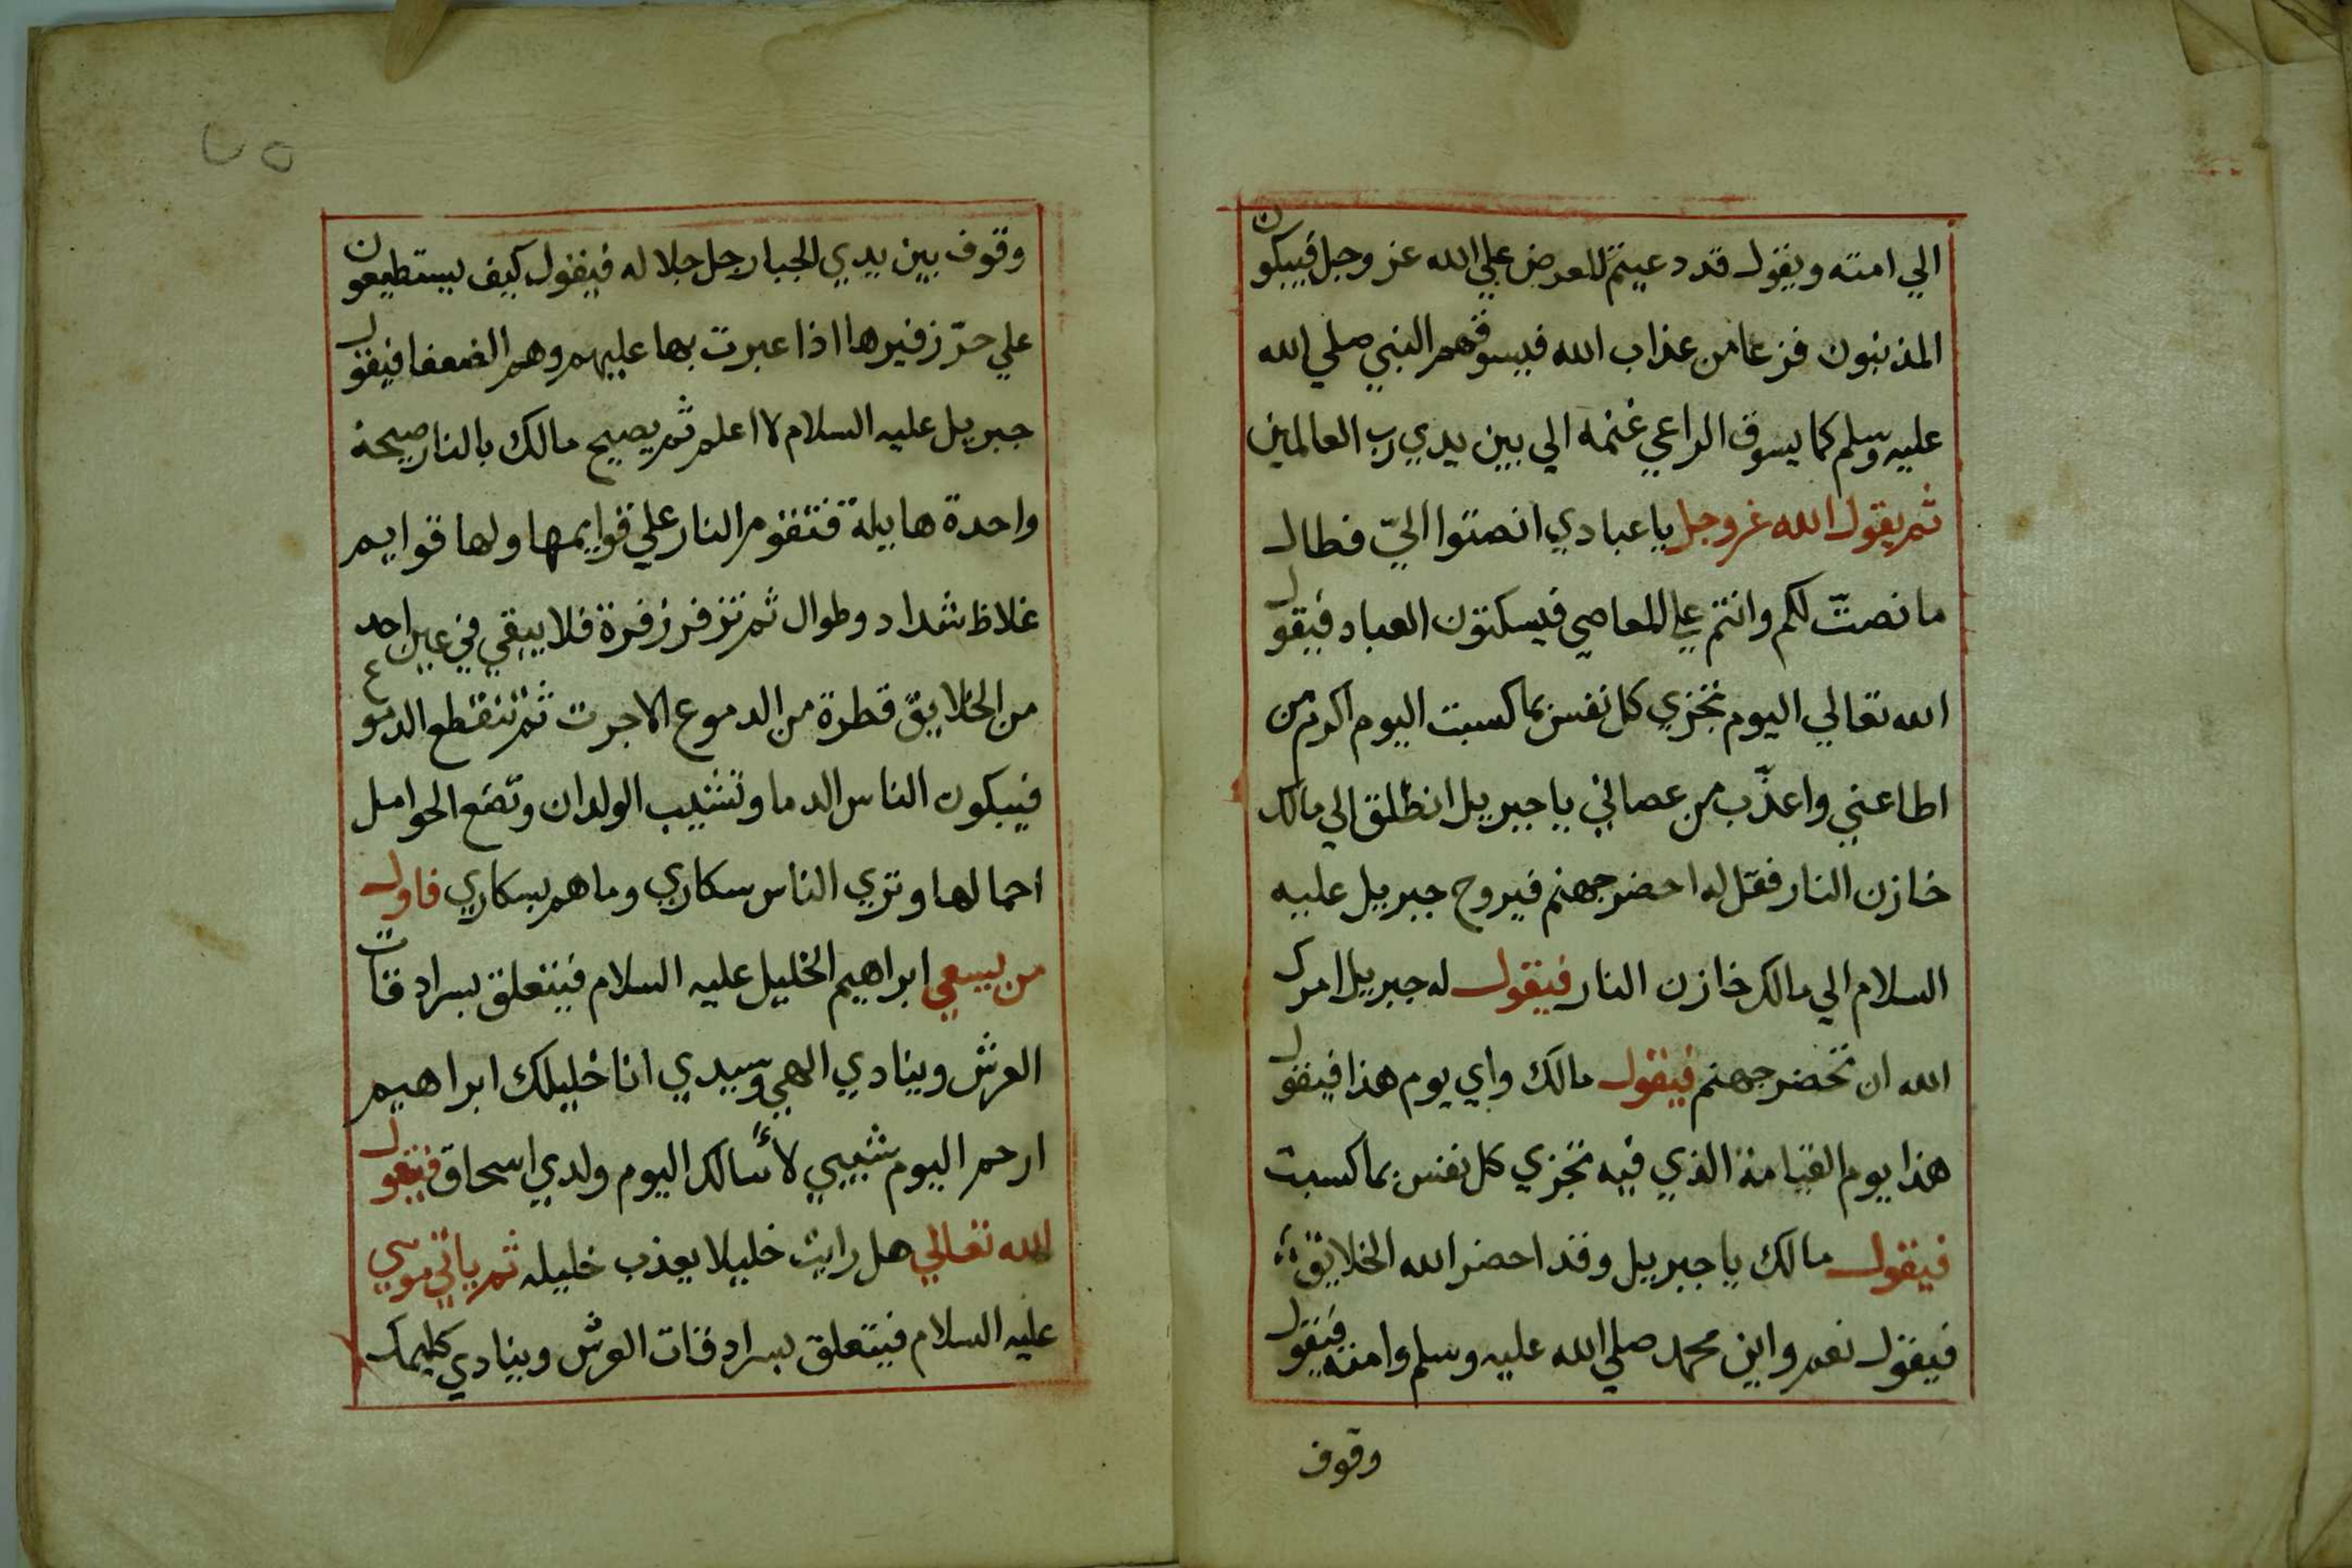 الي امته ويقول قد دعيتم للعرض علي الله عز وجل فيبكون
المذنبون فزعا من عذاب الله فيسوقهم النبي صلي الله
عليه وسلم كما يسوق الراعي غنمه الي بين يدي رب العالمين
ثم يقول الله عز وجل يا عبادي انصتوا اليّ فطال
ما نصتّ لكم وانتم علي المعاصي فيسكتون العباد فيقول
الله تعالي اليوم تجزي كل نفس بما كسبت اليوم اكرم من
اطاعني واعذّب من عصاني يا جبريل انطلق الي مالك
خازن النار فقل له احضر جهنم فيروح جبريل عليه
السلام الي مالك خازن النار فيقول له جبريل امرك
الله ان تحضر جهنم فيقول مالك واي يوم هذا فيقول
هذا يوم القيامة الذي فيه تجزي كل نفس بما كسبت
فيقول مالك يا جبريل وقد احضر الله الخلايق
فيقول نعم واين محمد صلي الله عليه وسلم وامته فيقول
وقوف
وقوف بين يدي الجبار جل جلاله فيقول كيف يستطيعون
علي حرّ زفيرها اذا عبرت بها عليهم وهم الضعفا فيقول
جبريل عليه السلام لا اعلم ثم يصيح مالك بالنار صيحة
واحدة هايلة فتقوم النار علي قوايمها ولها قوايم
غلاظ شداد وطوال ثم تزفر زفرة فلا يبقي في عين احد
من الخلايق قطرة من الدموع الا جرت ثم تنقطع الدموع
فيبكون الناس الدما وتشيب الولدان وتضع الحوامل
احمالها وتري الناس سكاري وما هم بسكاري فاول
من يسعي ابراهيم الخليل عليه السلام فيتعلق بسرادقات
العرش وينادي الهي وسيدي انا خليلك ابراهيم
ارحم اليوم شيبي لا أسالك اليوم ولدي اسحاق فيقول
الله تعالي هل رايت خليلا يعذب خليله ثم ياتي موسي
عليه السلام فيتعلق بسرادقات العرش وينادي كليمك